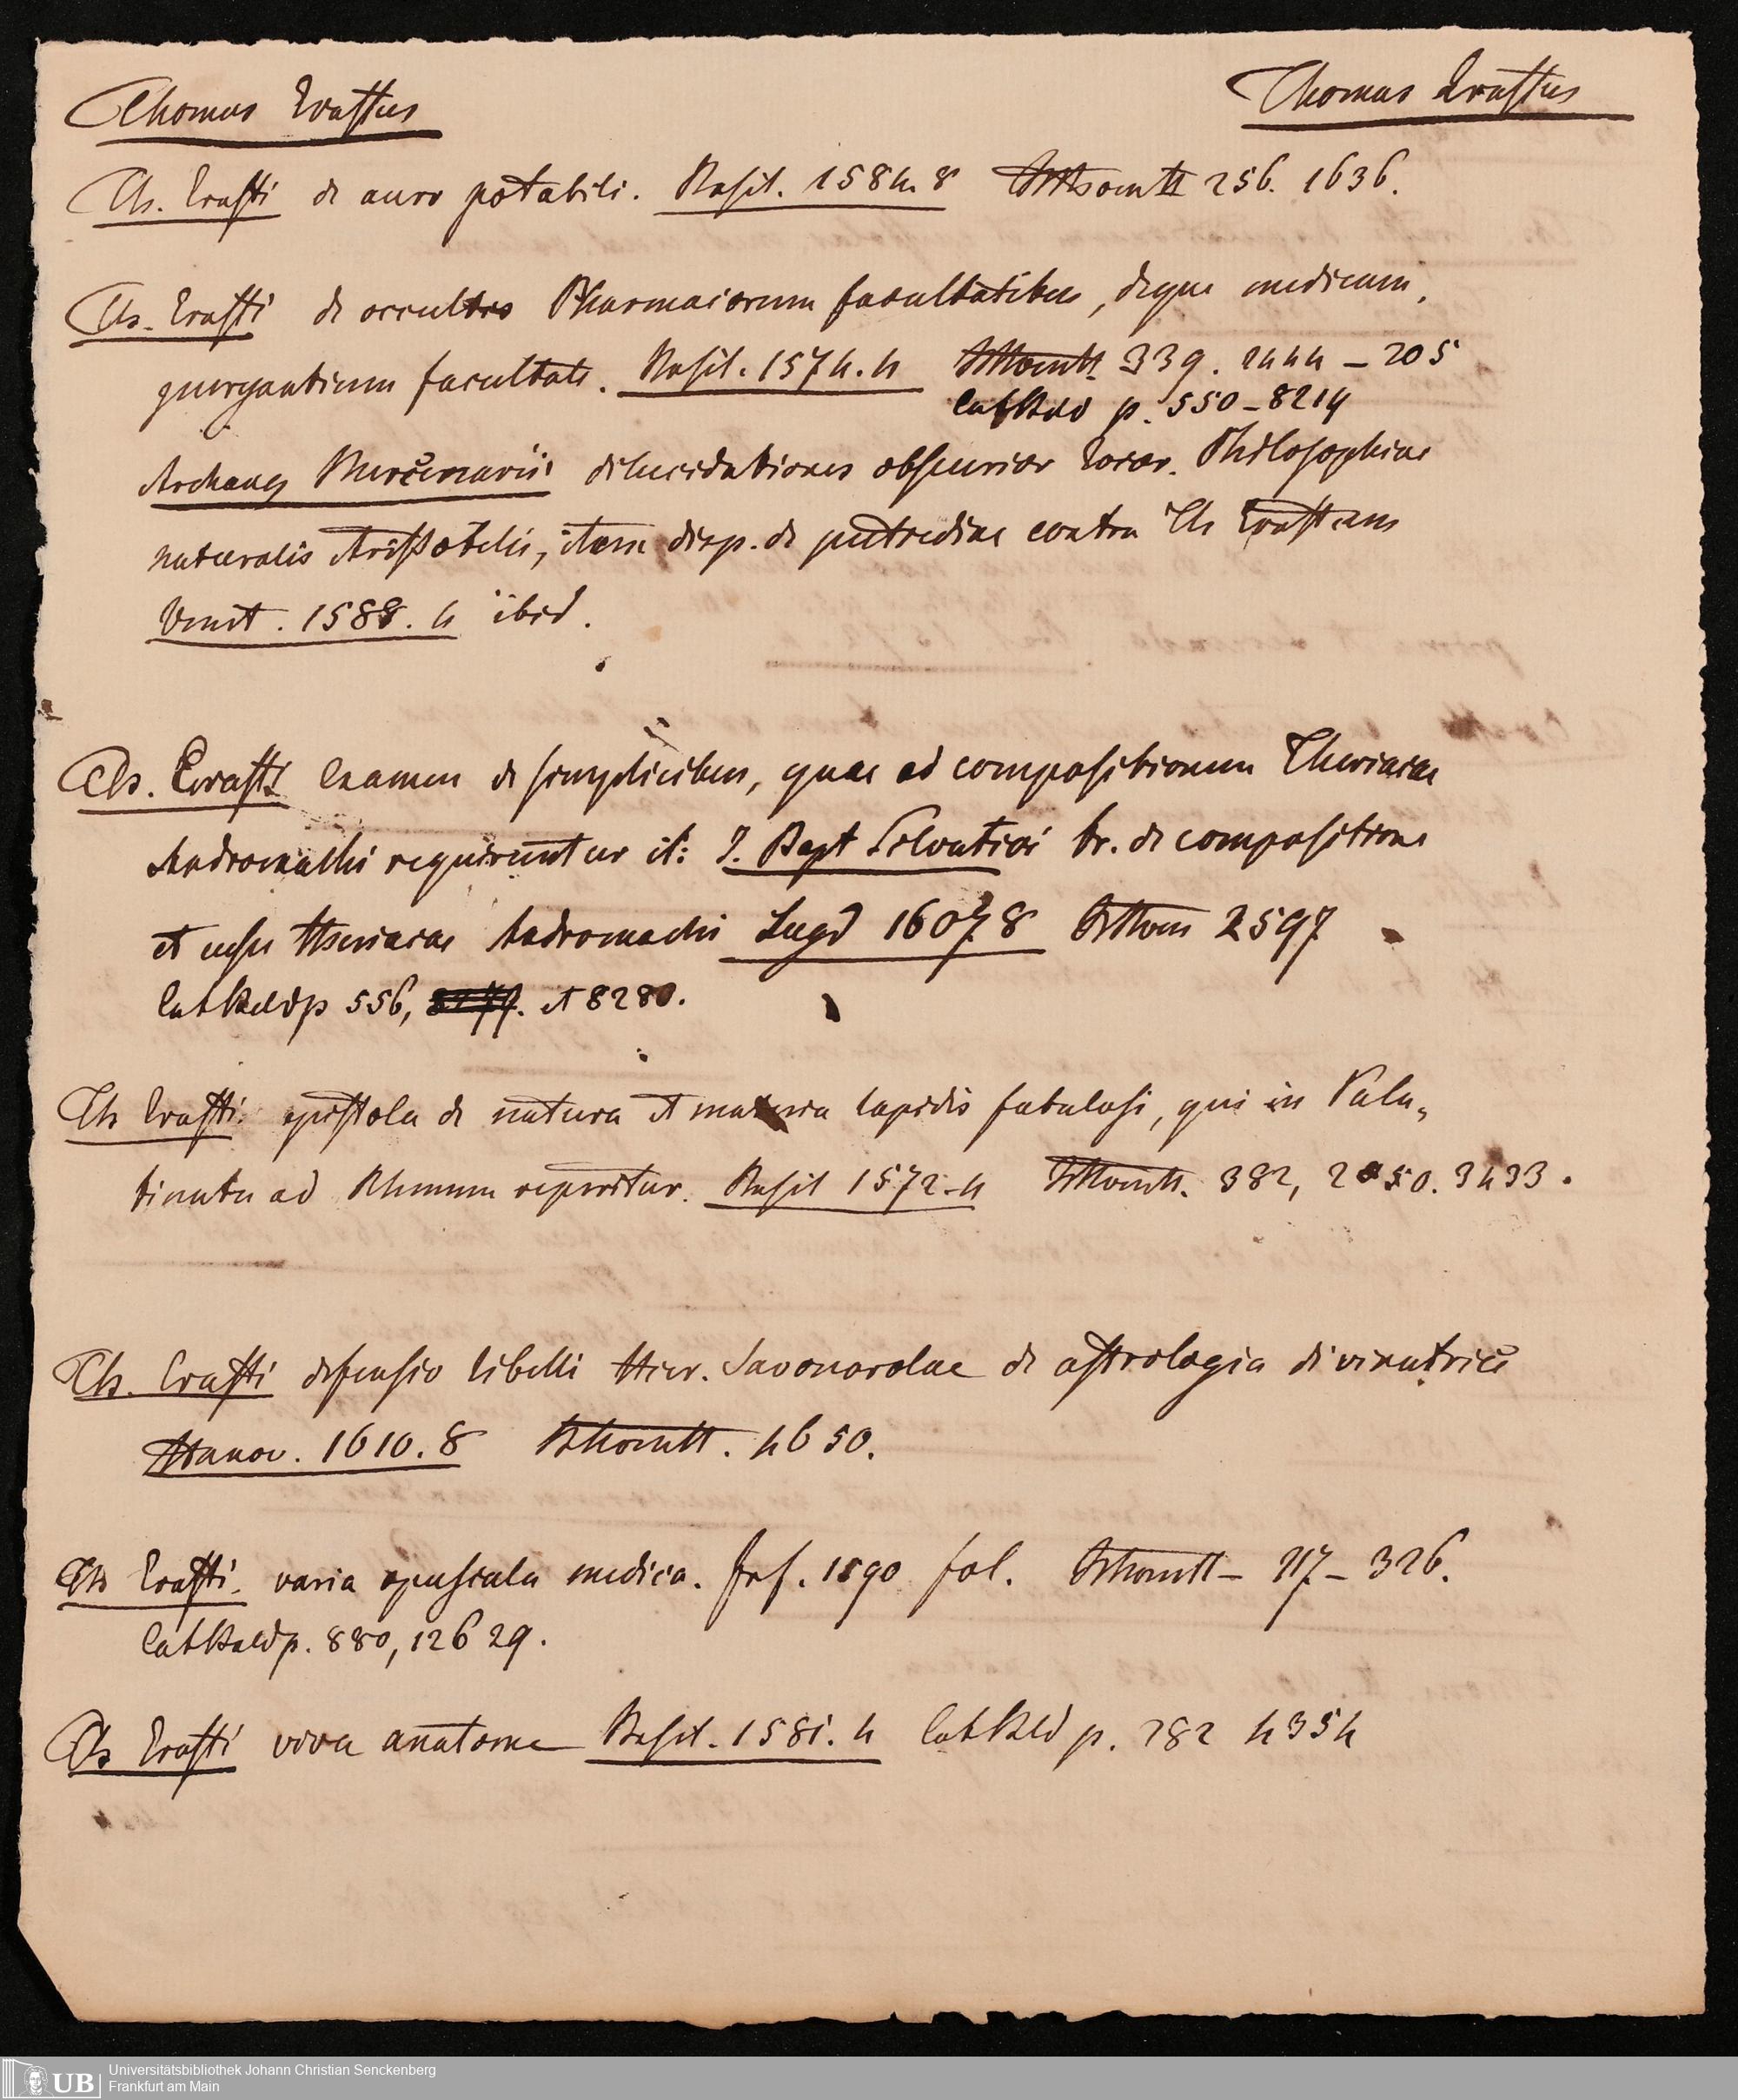 Thomas Erastus
Thomas Erastus
Th. Erasti de auro potabili. Basil. 1584. 8 256. 1636.
Th. Erasti de occultis Pharmacorum facultatibus, deque medicam.
purgantium facultate. Basil. 1574. 4 339. 2444 – 205
p. 550 – 8214
Archang Mercenarii dilucidationes obscurior locor. Philosophiae
naturalis Aristotelis, item disp. de putredine contra Th Erastum
Venet. 1588. 4 ibid.
Th. Erasti Examen de simplicibus, quae ad compositionem Theriacae
Andromachi requiruntur it: J. Bapt Silvatici tr. de compositione
et usu theriacae Andromachi Lugd 1607 8 2597
p 556, et 8280.
Th Erasti epistola de natura et materia lapidis fabulosi, qui in Pala„
tinatu ad Rhenum reperitur. Basil 1572. 4 382, 2 50. 3433.
Th. Erasti defensio libelli Hier. Savonarolae de astrologia divinatrice
Hanov. 1610. 8 4650.
Th Erasti varia opuscula medica. Frf. 1590 fol. 217 – 326.
p. 880, 12629.
Th Erasti viva anatome Basil. 1581. 4 p. 282 4354
UB
Universitätsbibliothek Johann Christian Senckenberg
Frankfurt am Main